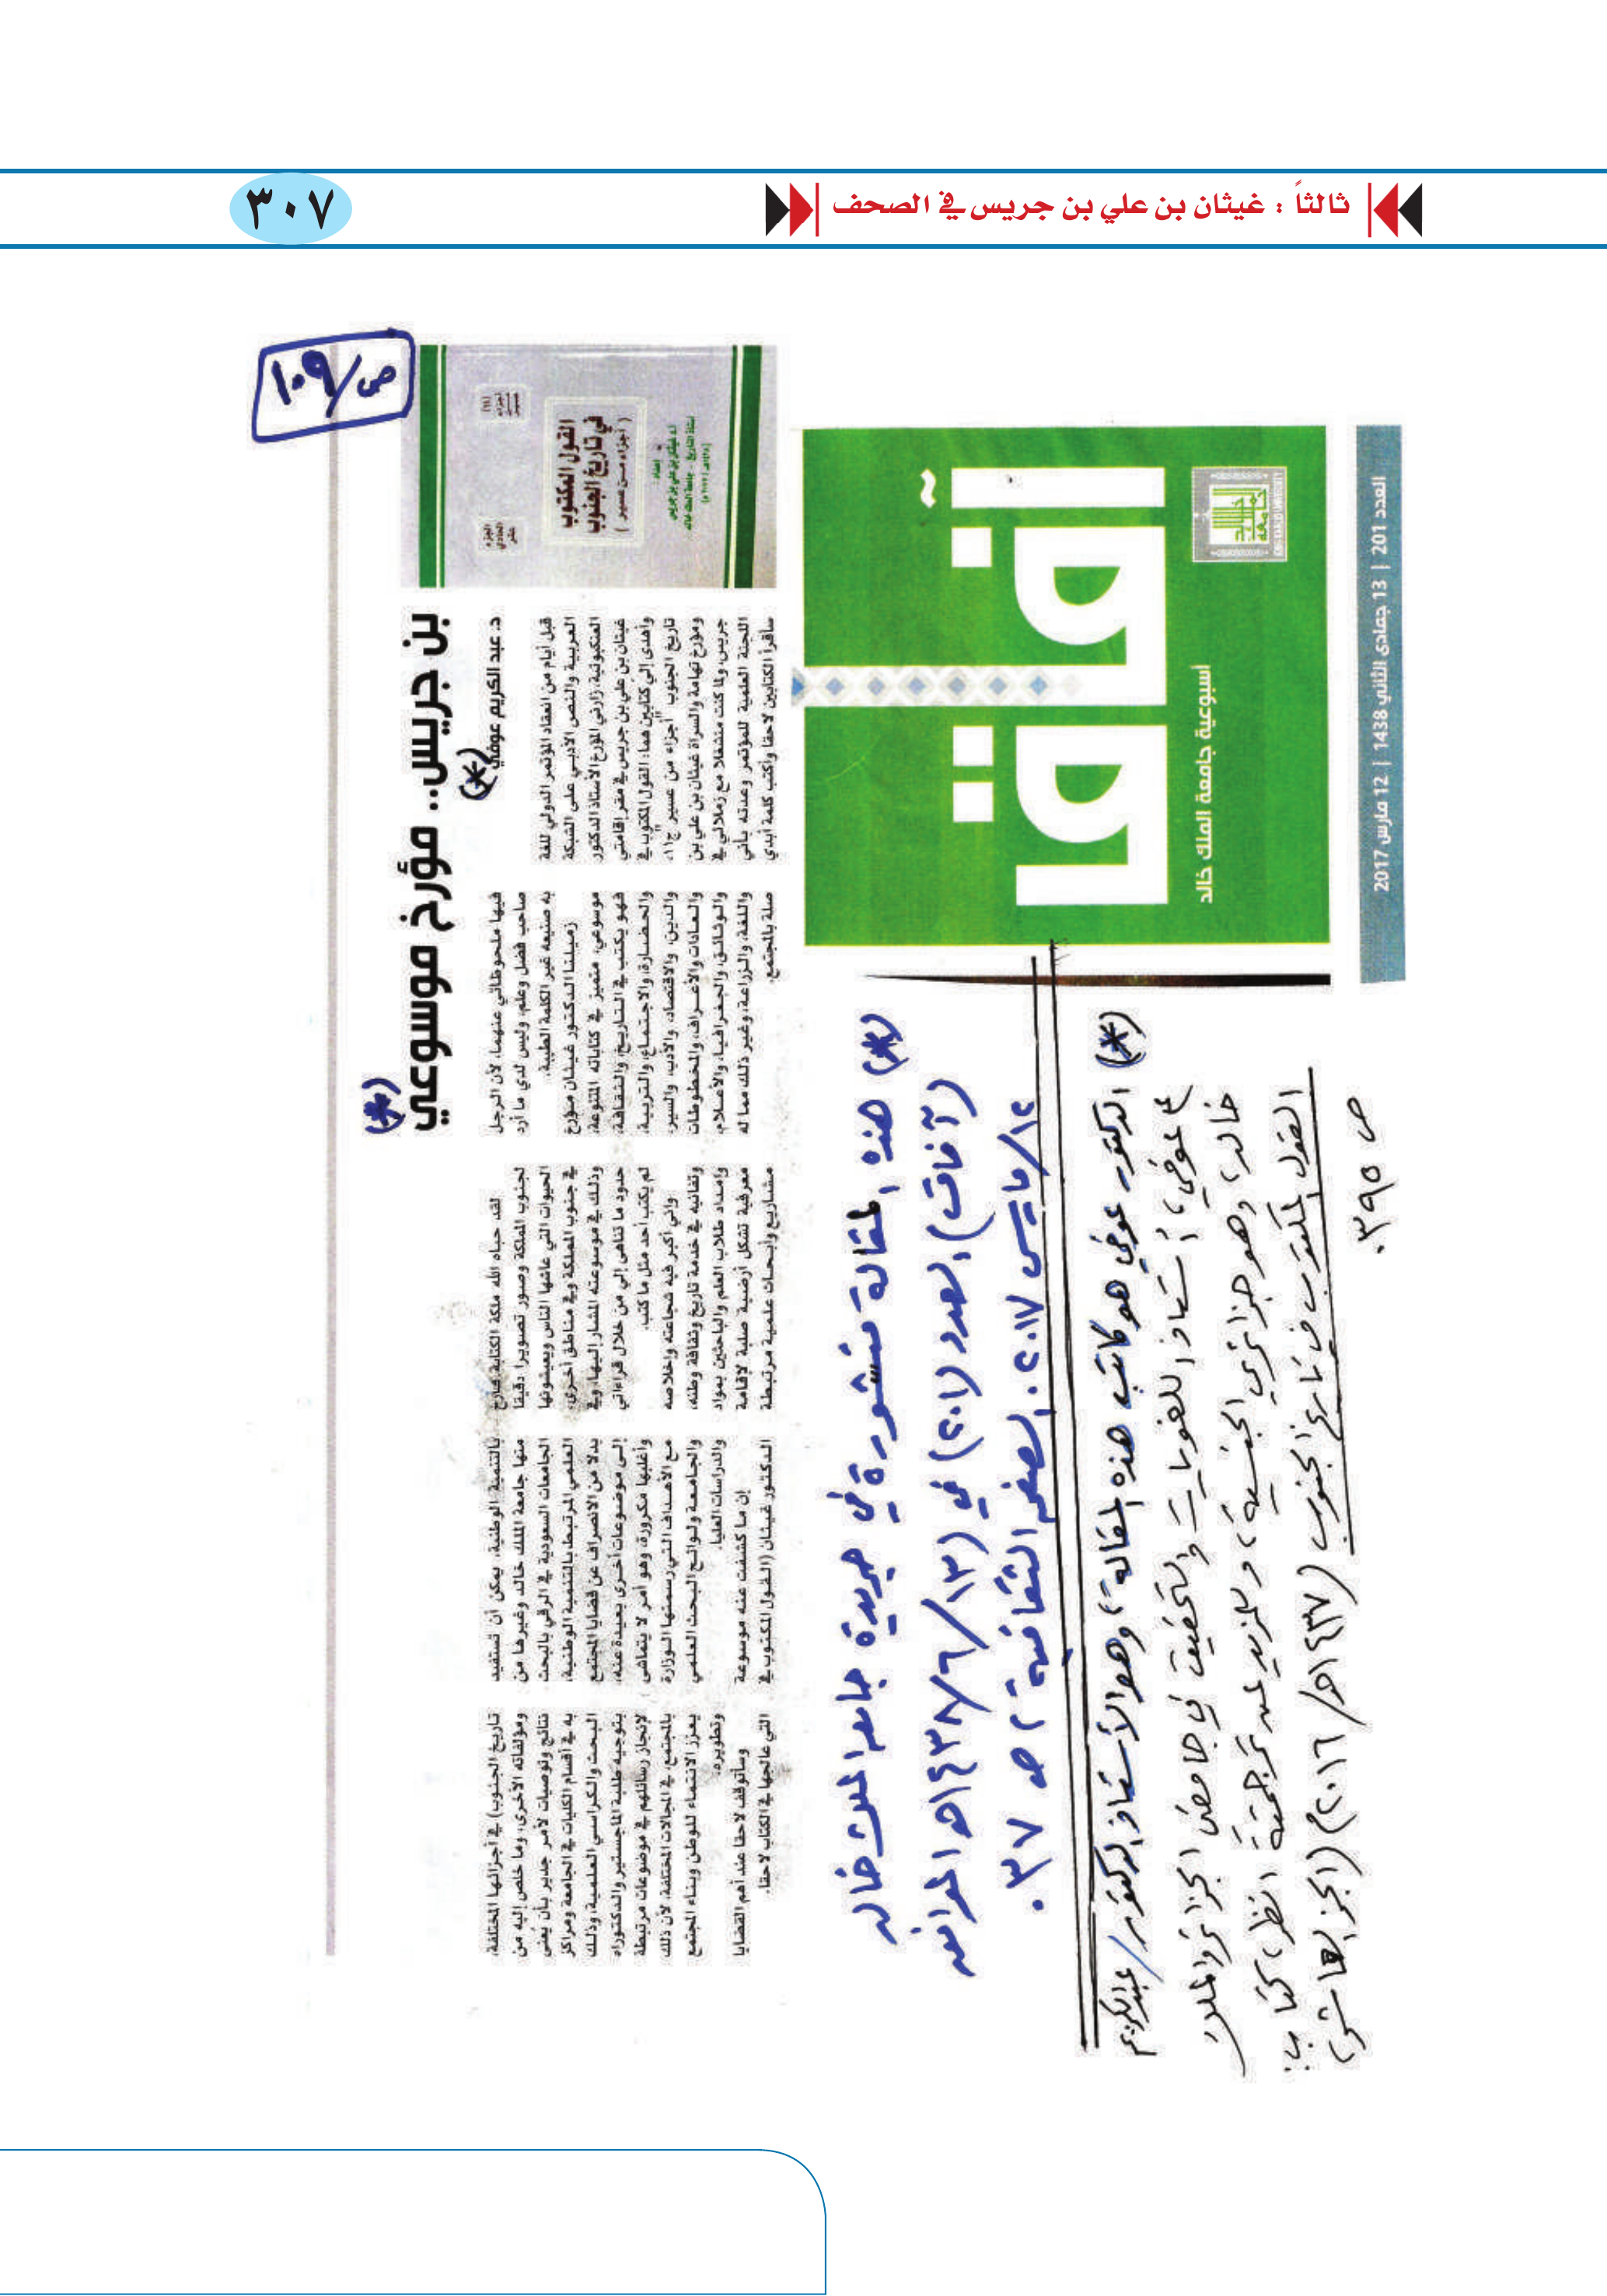 ثالثاً : غيثان بن علي بن جريس في الصحف
٣٠٧
ص/١٠٩
بن جريس.. مؤرخ موسوعي (*)
د. عبد الكريم عوفي (*)
قبل أيام من انعقاد المؤتمر الدولي للغة
العربية والنص الأدبي على الشبكة
العنكبوتية، زارني المؤرخ الأستاذ الدكتور
غيثان بن علي بن جريس في مقر إقامتي
وأهدى إلي كتابين هما: القول المكتوب في
تاريخ الجنوب "أجزاء من عسير" ج١١،
ومؤرخ تهامة والسراة غيثان بن علي بن
جريس، ولما كنت منشغلا مع زملائي في
اللجنة العلمية للمؤتمر وعدته بأني
سأقرأ الكتابين لاحقا وأكتب كلمة أبدي
فيها ملحوظاتي عنهما، لأن الرجل
صاحب فضل وعلم، وليس لدي ما أرد
به صنيعه غير الكلمة الطيبة.
زميلنا الدكتور غيثان مؤرخ
موسوعي، متميز في كتاباته المتنوعة،
فهو يكتب في التاريخ، والثقافة،
والحضارة، والاجتماع، والتربية،
والدين، والاقتصاد، والأدب، والسير،
والعادات والأعراف، والمخطوطات
والوثائق، والجغرافيا، والأعلام،
واللغة، والزراعة، وغير ذلك مما له
صلة بالمجتمع.
لقد حباه الله ملكة الكتابة فأرخ
لجنوب المملكة وصور تصويرا دقيقا
الحيوات التي عاشها الناس ويعيشونها
في جنوب المملكة وفي مناطق أخرى،
وذلك في موسوعته المشار إليها، وفي
حدود ما تناهى إلي من خلال قراءاتي
لم يكتب أحد مثل ما كتب.
وإني أكبر فيه شجاعته وإخلاصه
وتفانيه في خدمة تاريخ وثقافة وطنه،
وإمداد طلاب العلم والباحثين بمواد
معرفية تشكل أرضية صلبة لإقامة
مشاريع وأبحاث علمية مرتبطة
بالتنمية الوطنية، يمكن أن تستفيد
منها جامعة الملك خالد وغيرها من
الجامعات السعودية في الرقي بالبحث
العلمي المرتبط بالتنمية الوطنية،
بدلا من الانصراف عن قضايا المجتمع
إلى موضوعات أخرى بعيدة عنه،
وأغلبها مكرورة، وهو أمر لا يتماشى
مع الأهداف التي رسمتها الوزارة
والجامعة ولوائح البحث العلمي
والدراسات العليا.
إن ما كشفت عنه موسوعة
الدكتور غيثان (القول المكتوب في
تاريخ الجنوب) في أجزائها المختلفة،
ومؤلفاته الأخرى، وما خلص إليه من
نتائج وتوصيات لأمر جدير بأن يُعنى
به في أقسام الكليات في الجامعة ومراكز
البحث والكراسي العلمية، وذلك
بتوجيه طلبة الماجستير والدكتوراه
لإنجاز رسائلهم في موضوعات مرتبطة
بالمجتمع، في المجالات المختلفة، لأن ذلك
يعزز الانتماء للوطن وبناء المجتمع
وتطويره.
وسأتوقف لاحقا عند أهم القضايا
التي عالجها في الكتاب لاحقا.
الجزء
الحادي
عشر
القول المكتوب
في تاريخ الجنوب
( أجزاء من عسير )
آفاق
أسبوعية جامعة الملك خالد
العدد 201 | 13 جمادى الثاني 1438 | 12 مارس 2017
(*) هذه المقالة منشورة في جريدة جامعة الملك خالد
(آفاق) العدد (٢٠١) في (١٣/٦/١٤٣٨هـ الموافق
١٢/مارس ٢٠١٧. الصفحة الثقافية ص ٣٧.
(*) الدكتور عوفي هو كاتب هذه المقالة، وهو الأستاذ الدكتور/ عبدالكريم
عوفي، أستاذ اللغويات والتحقيق في جامعتي الجزائر والملك
خالد، وهو جزائري الجنسية، وللمزيد عن ترجمته انظر، كتاب:
القول المكتوب في تاريخ الجنوب (١٤٣٧هـ/٢٠١٦م) (الجزء العاشر)
ص ٣٩٥.